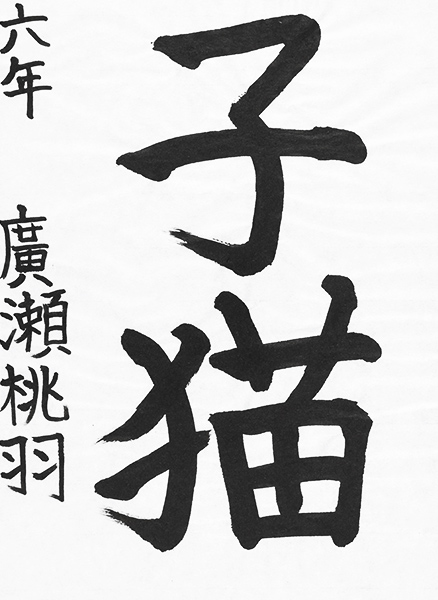 子猫
六年 廣瀬桃羽